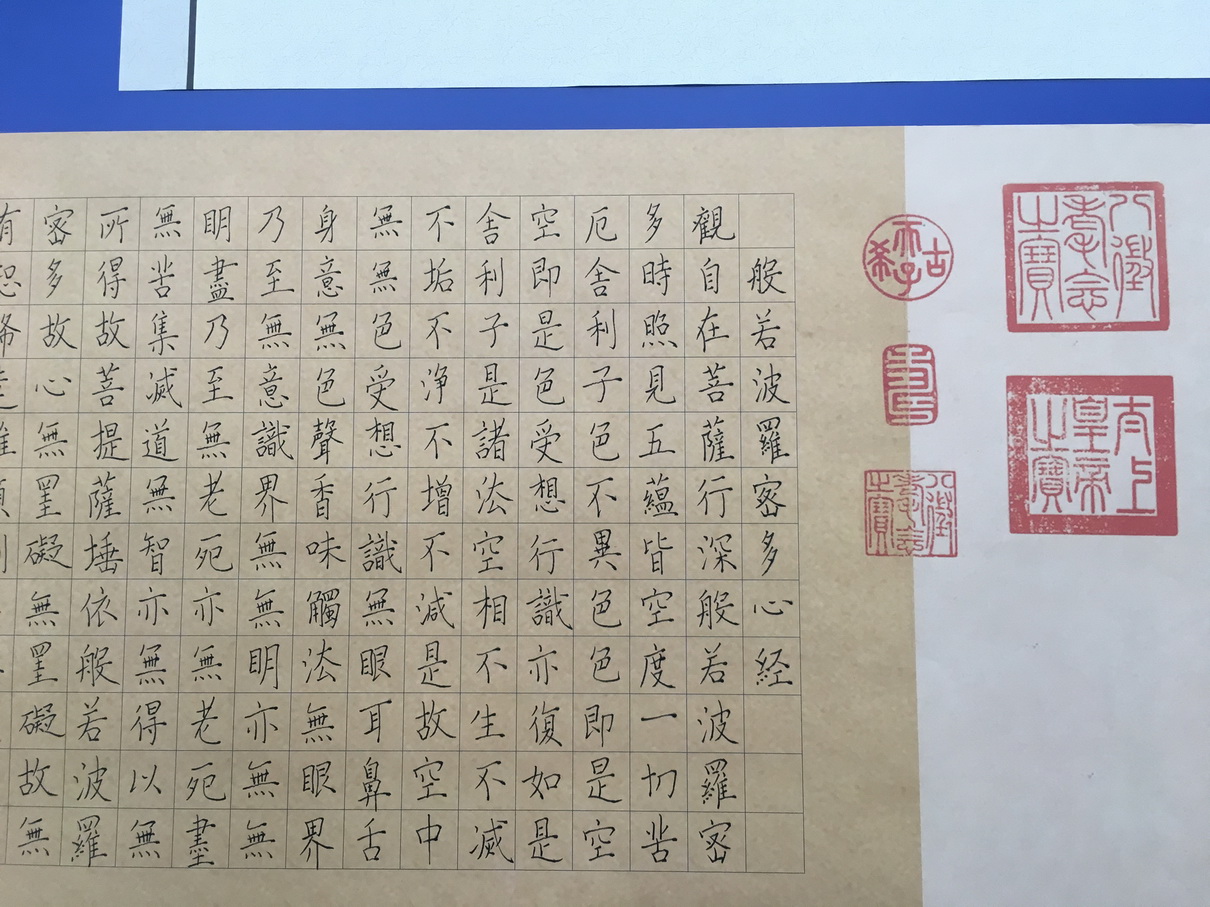 八徵耄念之寶
太上皇帝之寶
古希天子
八徵耄念之寶
般若波羅密多心経
觀自在菩薩行深般若波羅密
多時照見五蘊皆空度一切苦
厄舍利子色不異色色即是空
空即是色受想行識亦復如是
舍利子是諸法空相不生不滅
不垢不浄不增不減是故空中
無無色受想行識無眼耳鼻舌
身意無色聲香味觸法無眼界
乃至無意識界無無明亦無無
明盡乃至無老死亦無老死盡
無苦集滅道無智亦無得以無
所得故菩提薩埵依般若波羅
密多故心無罣礙無罣礙故無
有